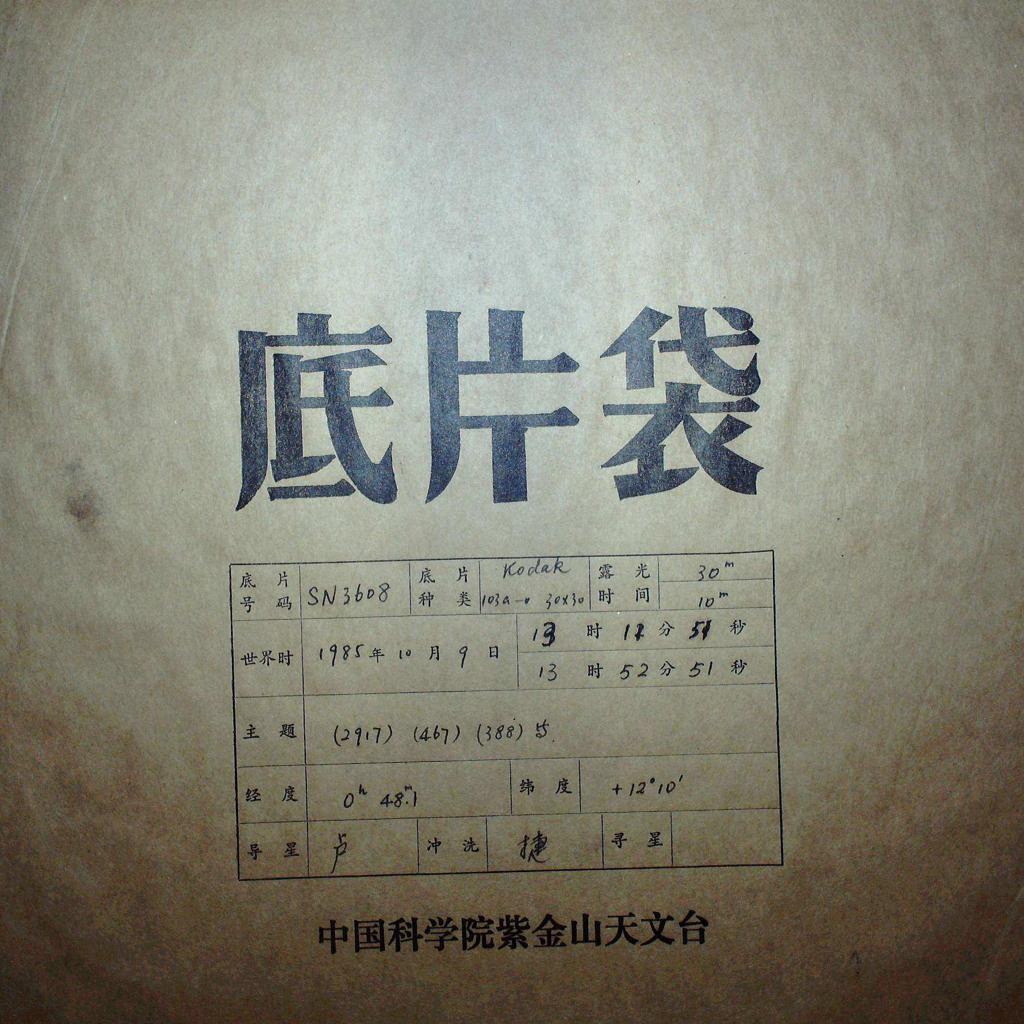 底片袋
底片号码 SN3608 底片种类 Kodak 103a-o 30x30 露光时间 30m 10m
世界时 1985年10月9日 13时12分51秒
13时52分51秒
主题 (2917) (467) (388) 5.
经度 0h 48m.1 纬度 +12°10′
导星 卢 冲洗 捷 寻星
中国科学院紫金山天文台